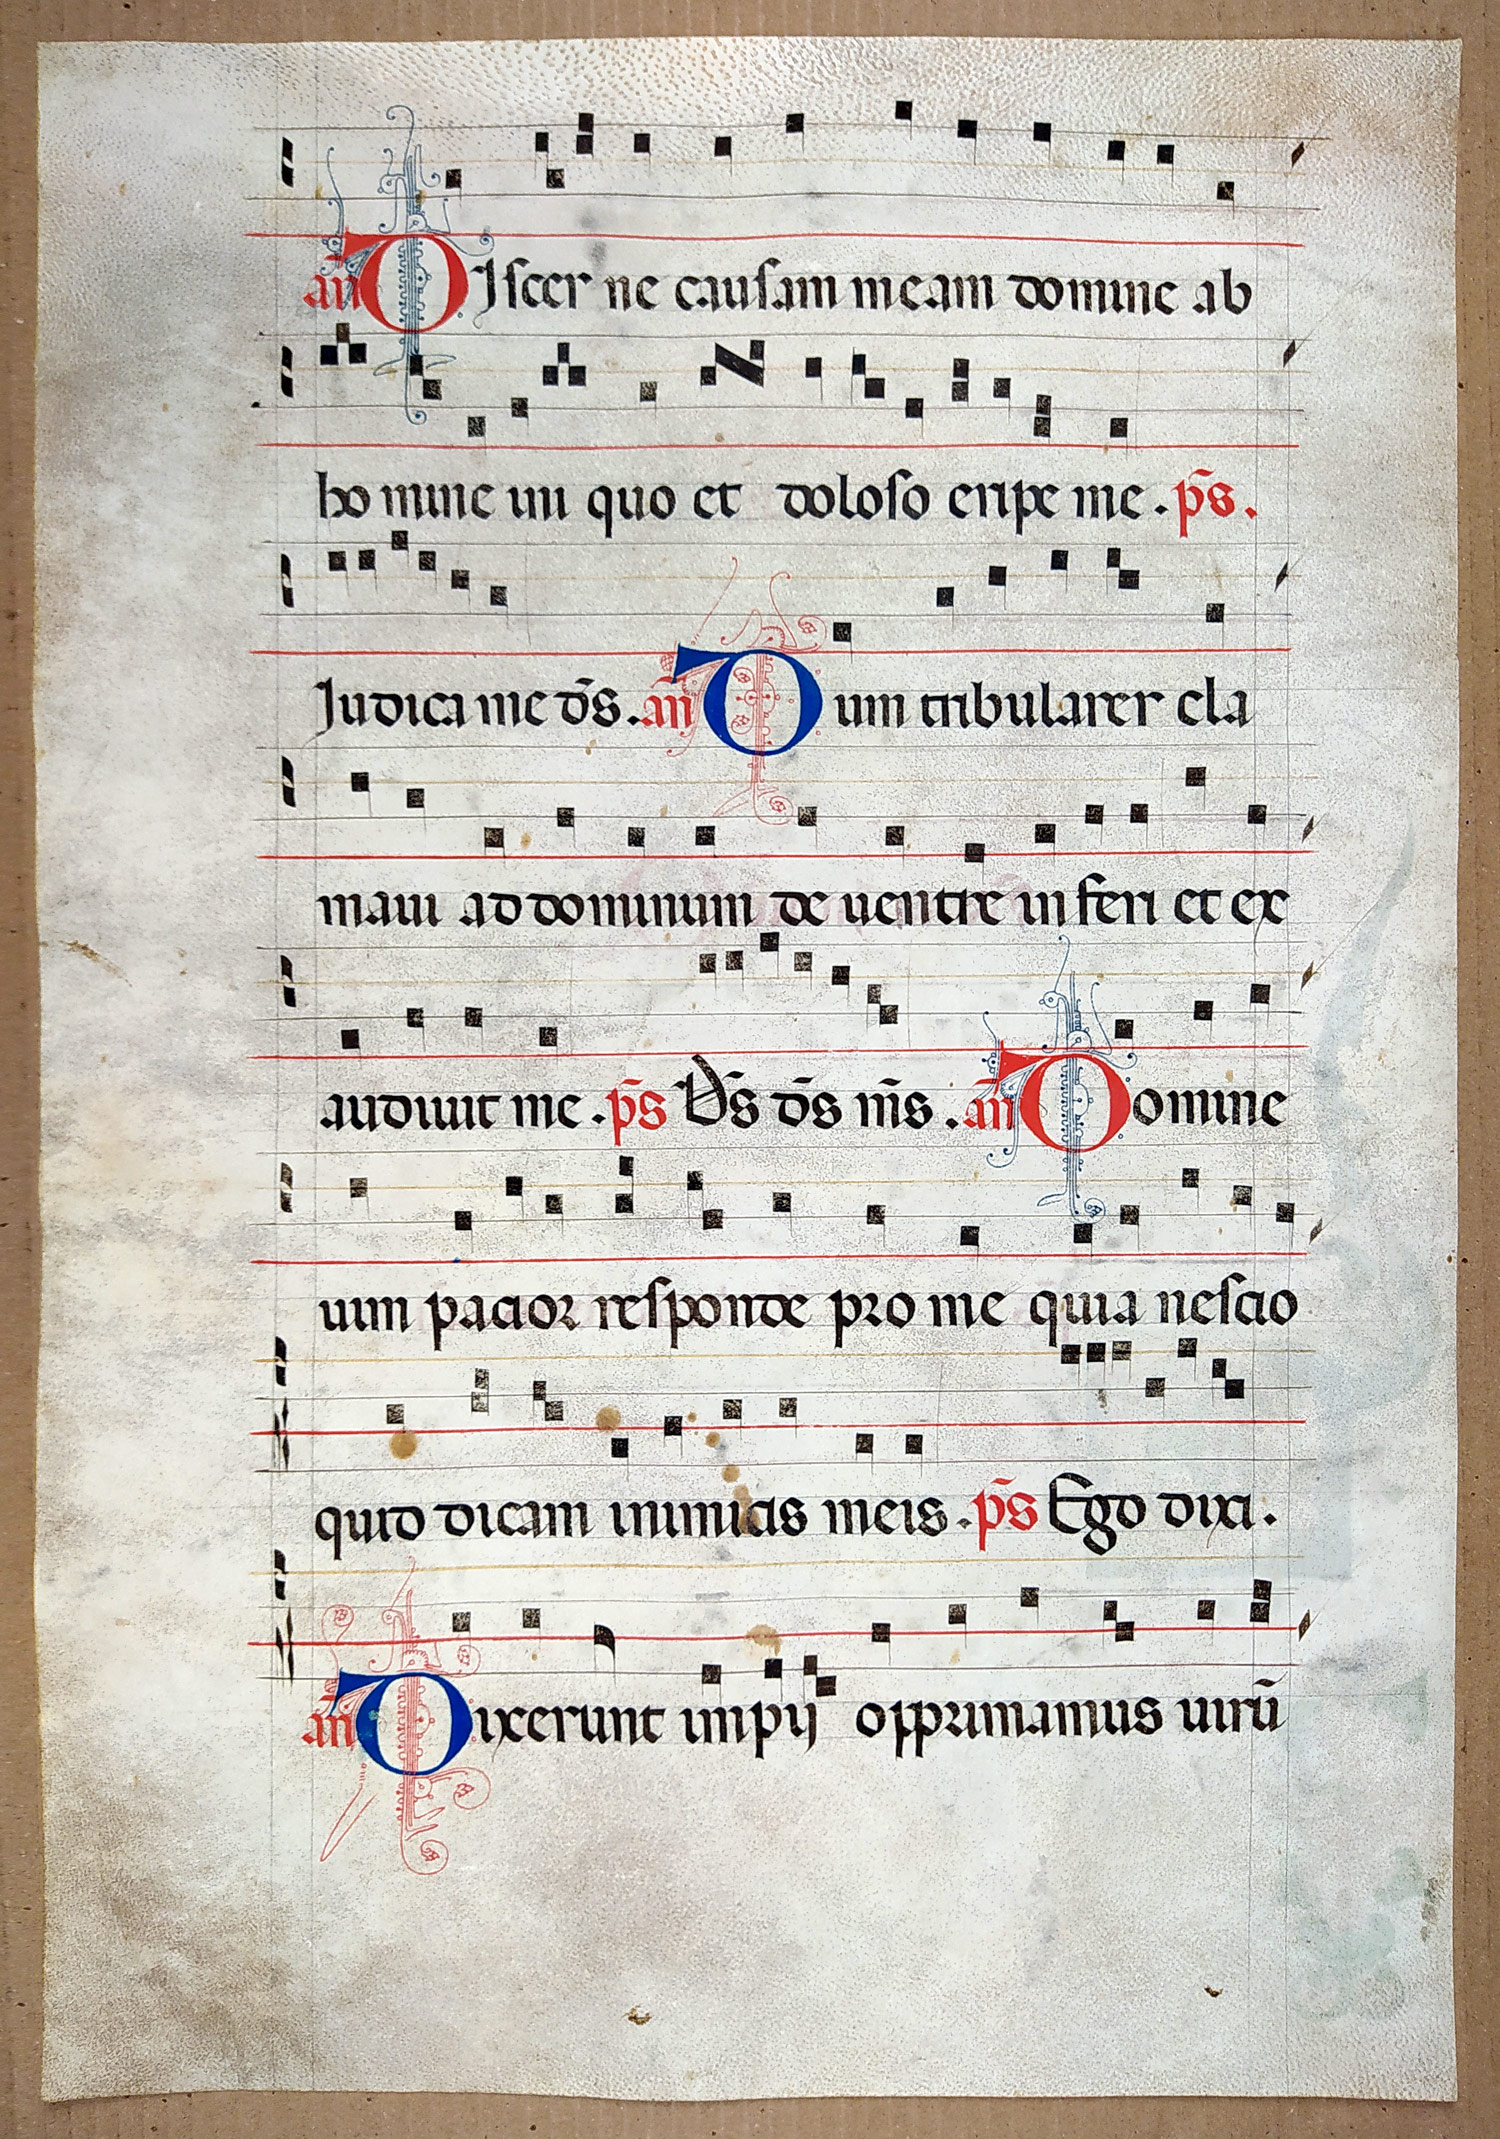 añ DIscer ne causam meam domine ab
ho mine ini quo et doloso eripe me . ps̄.
Judica me d̄s . añ Dum tribularer cla
maui ad dominum de uentre in feri et ex
audiuit me . ps̄ D̄s d̄s m̄s . añ Domine
uim pacior responde pro me quia nescio
quid dicam inimicis meis . ps̄ Ego dixi .
añ Dixerunt impij opprimamus uirū